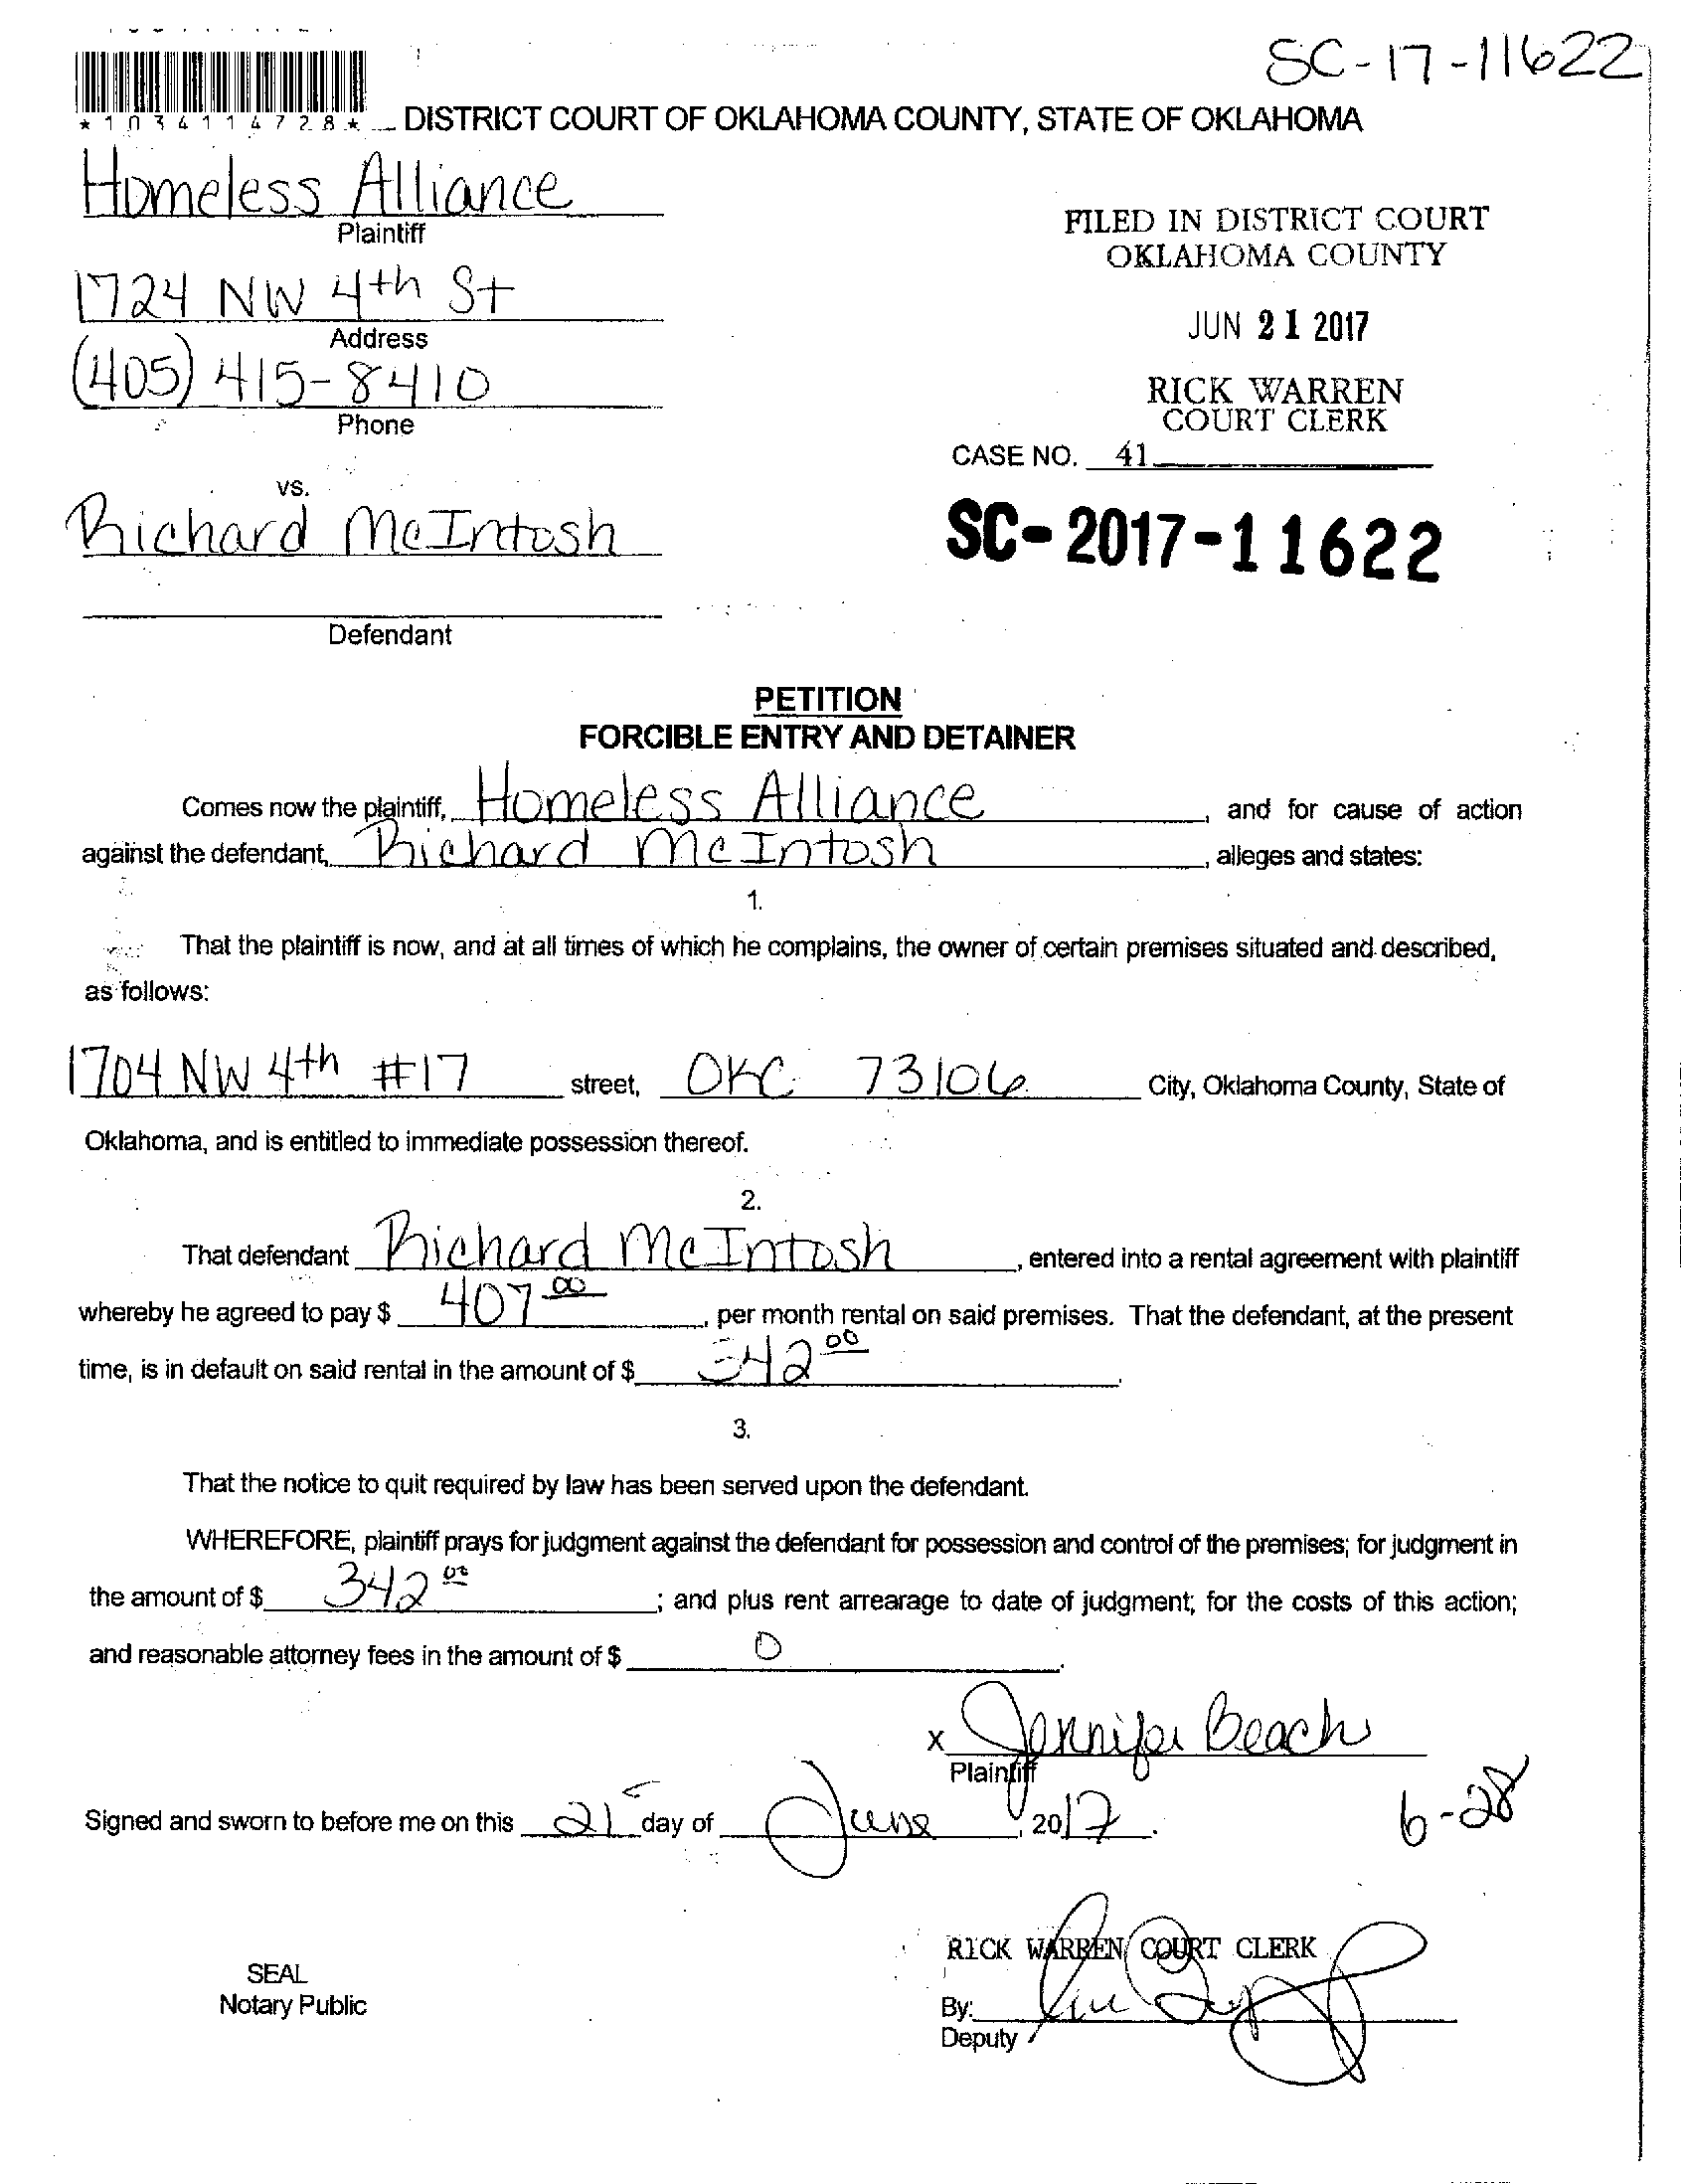 SC-17-11622
*1034114728*
DISTRICT COURT OF OKLAHOMA COUNTY, STATE OF OKLAHOMA
Homeless Alliance
Plaintiff
1724 NW 4th St
Address
(405) 415-8410
Phone
vs.
Richard McIntosh
Defendant
FILED IN DISTRICT COURT
OKLAHOMA COUNTY
JUN 21 2017
RICK WARREN
COURT CLERK
CASE NO. 41
SC-2017-11622
PETITION
FORCIBLE ENTRY AND DETAINER
Comes now the plaintiff, Homeless Alliance, and for cause of action
against the defendant, Richard McIntosh, alleges and states:
1.
That the plaintiff is now, and at all times of which he complains, the owner of certain premises situated and described,
as follows:
1704 NW 4th #17 street, OKC 73106 City, Oklahoma County, State of
Oklahoma, and is entitled to immediate possession thereof.
2.
That defendant Richard McIntosh, entered into a rental agreement with plaintiff
whereby he agreed to pay $ 407 00, per month rental on said premises. That the defendant, at the present
time, is in default on said rental in the amount of $ 342 00.
3.
That the notice to quit required by law has been served upon the defendant.
WHEREFORE, plaintiff prays for judgment against the defendant for possession and control of the premises; for judgment in
the amount of $ 342 00; and plus rent arrearage to date of judgment; for the costs of this action;
and reasonable attorney fees in the amount of $ 0.
x Jennifer Beach
Plaintiff
Signed and sworn to before me on this 21 day of June, 2017.
6-28
RICK WARREN COURT CLERK
SEAL
Notary Public
By:
Deputy